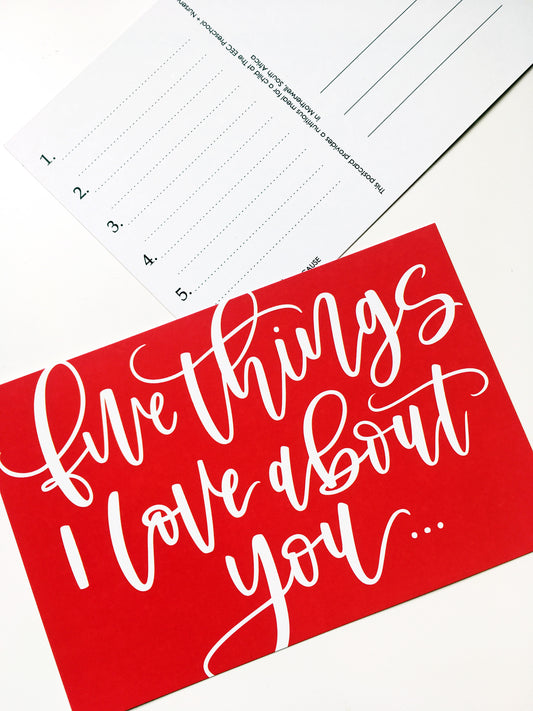 This postcard provides a nutritious meal for a child at The EEC Preschool + Nursery
in Motherwell, South Africa
1.
2.
3.
4.
5.
five things
I love about
you...